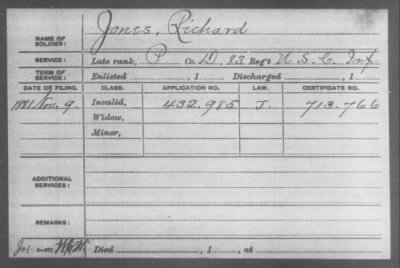 Jones, Richard
NAME OF SOLDIER:
SERVICE: Late rank, P Co. D, 83 Reg't U. S. C. Inf
TERM OF SERVICE: Enlisted , 1 Discharged , 1
DATE OF FILING. CLASS. APPLICATION NO. LAW. CERTIFICATE NO.
1881 Nov. 9. Invalid, 432.985 J. 713.766
Widow,
Minor,
ADDITIONAL SERVICES:
REMARKS:
Died , 1 , at